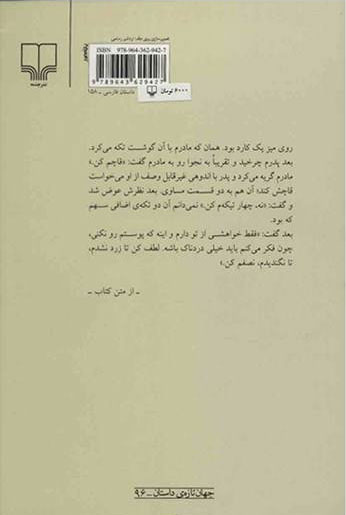 ISBN 978-964-362-942-7
9 789643 629427
داستان فارسی - ۱۵۸
۶۰۰۰ تومان
نشرچشمه
روی میز یک کارد بود. همان که مادرم با آن گوشت تکه می‌کرد.
بعد پدرم چرخید و تقریباً به نجوا رو به مادرم گفت: «قاچم کن.»
مادرم گریه می‌کرد و پدر با اندوهی غیرقابل وصف از او می‌خواست
قاچش کند؛ آن هم به دو قسمت مساوی. بعد نظرش عوض شد
و گفت: «نه، چهار تیکه‌م کن.» نمی‌دانم آن دو تکه‌ی اضافی سهم
که بود.
بعد گفت: «فقط خواهشی از تو دارم و اینه که پوستم رو نکنی،
چون فکر می‌کنم باید خیلی دردناک باشه. لطف کن تا زرد نشدم،
تا نگندیدم، نصفم کن.»
ـ از متن کتاب ـ
جهان تازه‌ی داستان ـ ۹۶